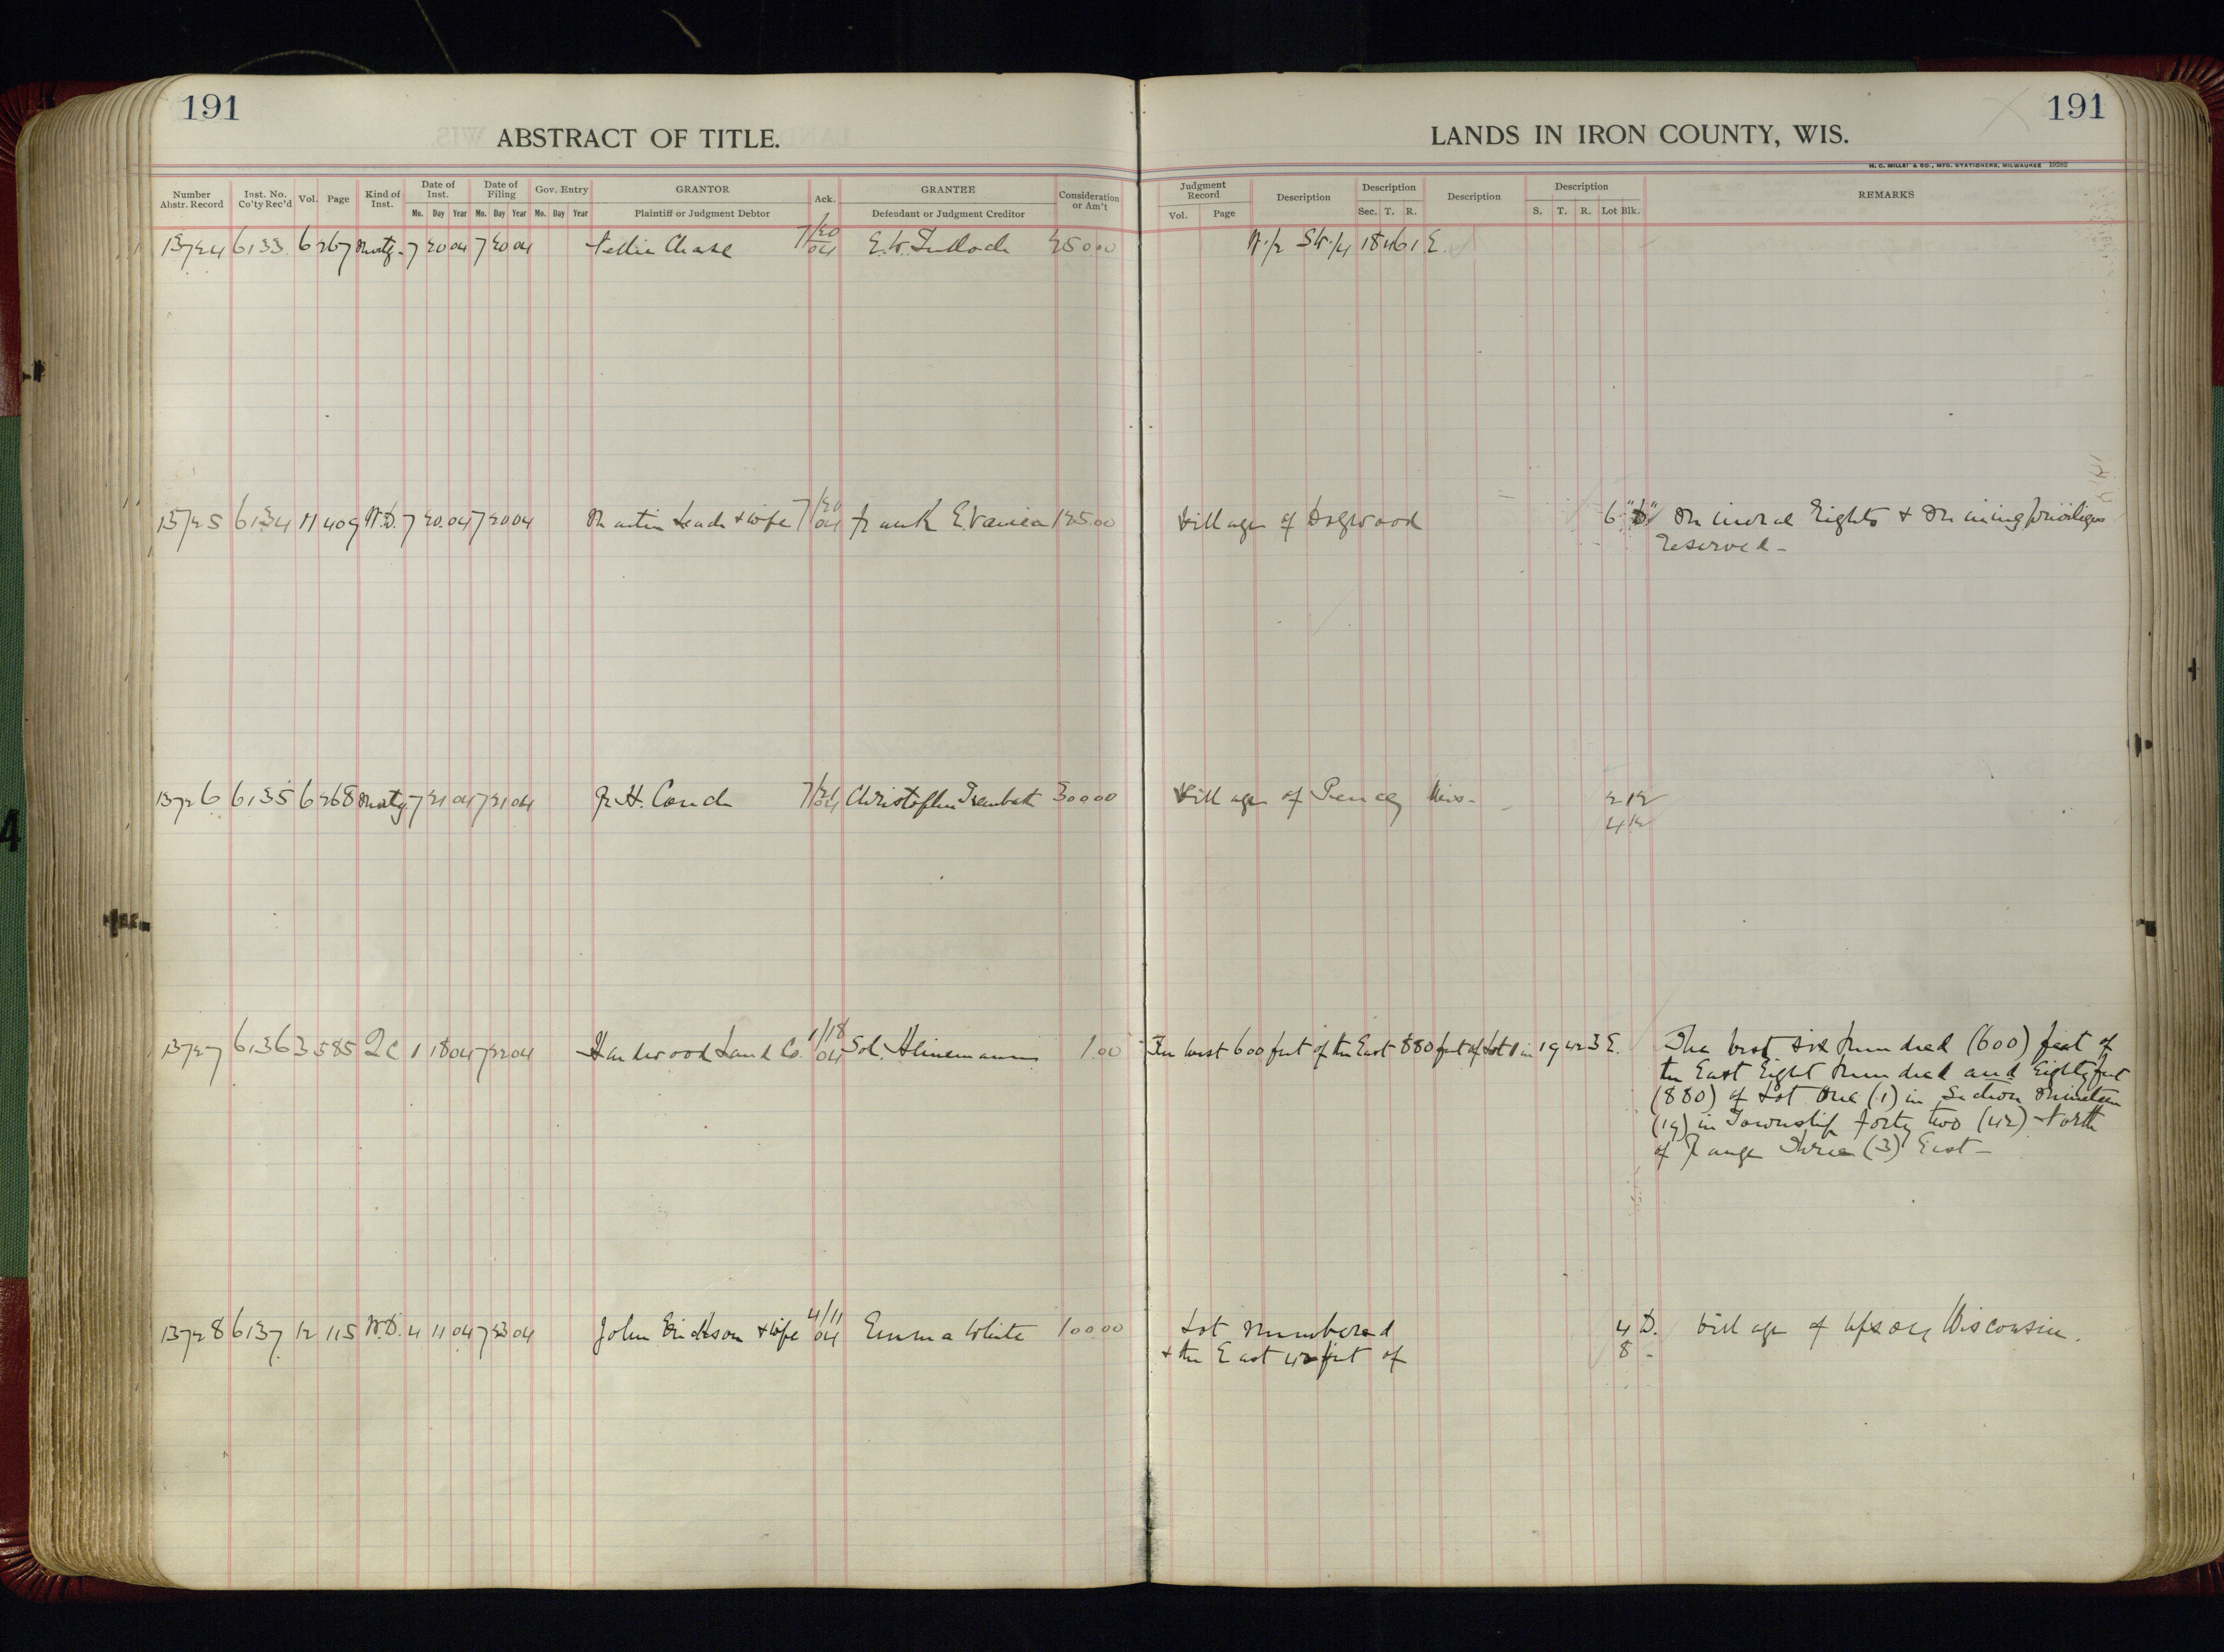 191
ABSTRACT OF TITLE.
LANDS IN IRON COUNTY, WIS.
191
H. C. MILLER & CO., MFG. STATIONERS, MILWAUKEE 19282
Number Abstr. Record Inst. No. Co'ty Rec'd Vol. Page Kind of Inst. Date of Inst. Mo. Day Year Date of Filing Mo. Day Year Gov. Entry Mo. Day Year GRANTOR Plaintiff or Judgment Debtor Ack. GRANTEE Defendant or Judgment Creditor Consideration or Am't
Judgment Record Vol. Page Description Description Sec. T. R. Description Description S. T. R. Lot Blk. REMARKS
13724 6133 6 267 Mortg. 7 20 04 7 20 04 Nellie Chase 7/20 04 E. W. 250 00 W. 1/2 S.W. 1/4 18 46 1 E.
13725 6134 11 409 W.D. 7 20 04 7 20 04 Martin & wife 7/20 04 Frank E. 125.00 Village of Dogwood 6 "D" Mineral Rights & Mining privileges
reserved -
13726 6135 6 268 Mortg. 7 21 04 7 21 04 H. 7/21 04 Christopher Trembath 300 00 Village of Pence, Wis. - 2 12
4 12
13727 6136 3 585 QC 1 18 04 7 22 04 Hardwood Land Co. 1/18 04 Sol. Heinemann 1.00 The West 600 feet of the East 880 feet of Lot 1 in 19 42 3 E. The West Six hundred (600) feet of
the East Eight hundred and Eighty feet
(880) of Lot One (1) in Section Nineteen
(19) in Township forty two (42) North
of Range Three (3) East -
13728 6137 12 115 W.D. 4 11 04 7 23 04 John Erickson & wife 4/11 04 Emma White 100 00 Lot numbered 4 D. Village of Upson, Wisconsin.
& the East 42 feet of 8 -